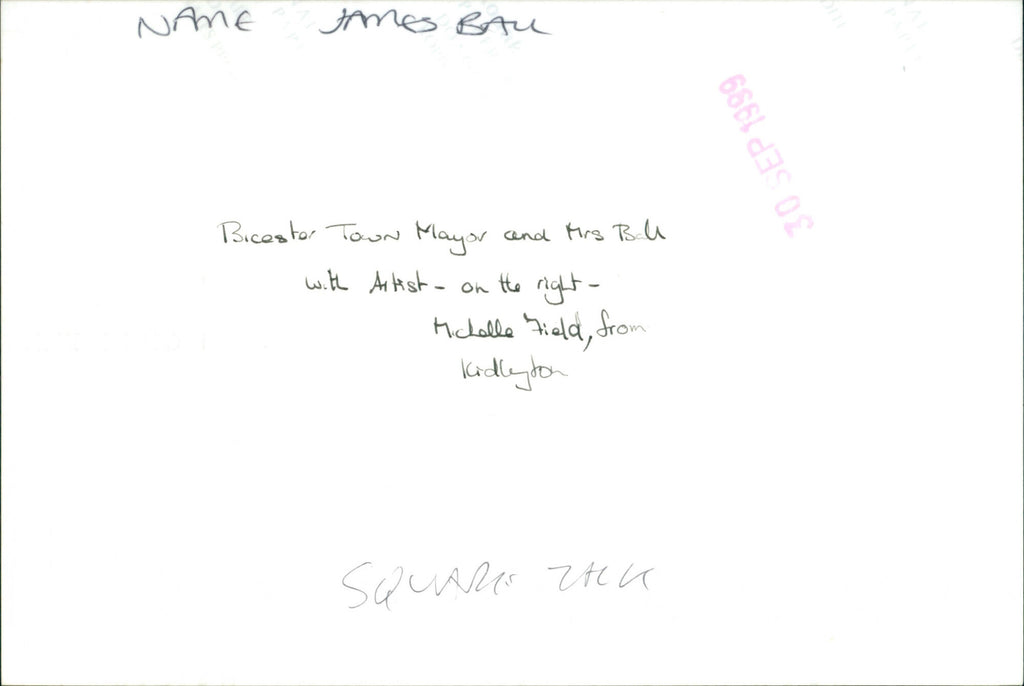 NAME JAMES BALL
30 SEP 1999
Bicester Town Mayor and Mrs Ball
with Artist - on the right -
Michelle Field, from
Kidlington
SQUARE TALK